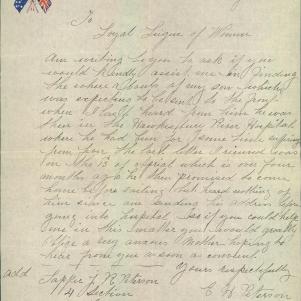 To
Loyal League of Women
Am writing to you to ask if you
would kindly assist me in finding
the where abouts of my son which
was expecting to be sent to the front
when I last heard from him he was
then in the Hawkesbury River Hospital
where he had been for some time
from him the last letter I received was
on the 13 of april which is over four
months ago he then promised to come
home before sailing but heard nothing of
him since am sending his address before
going into hospital. see if you could help
me in this matter you would greatly
oblige a very anxious Mother hoping to
hear from you as soon as convenient
Yours respectfully
add Sapper J R Peterson
4 Section
C Peterson